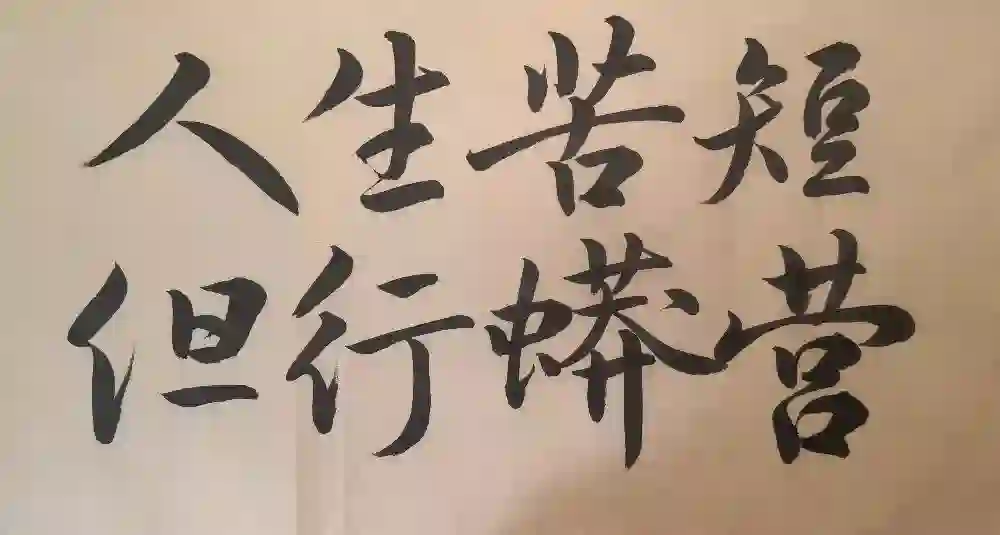 人生苦短
但行蟒营